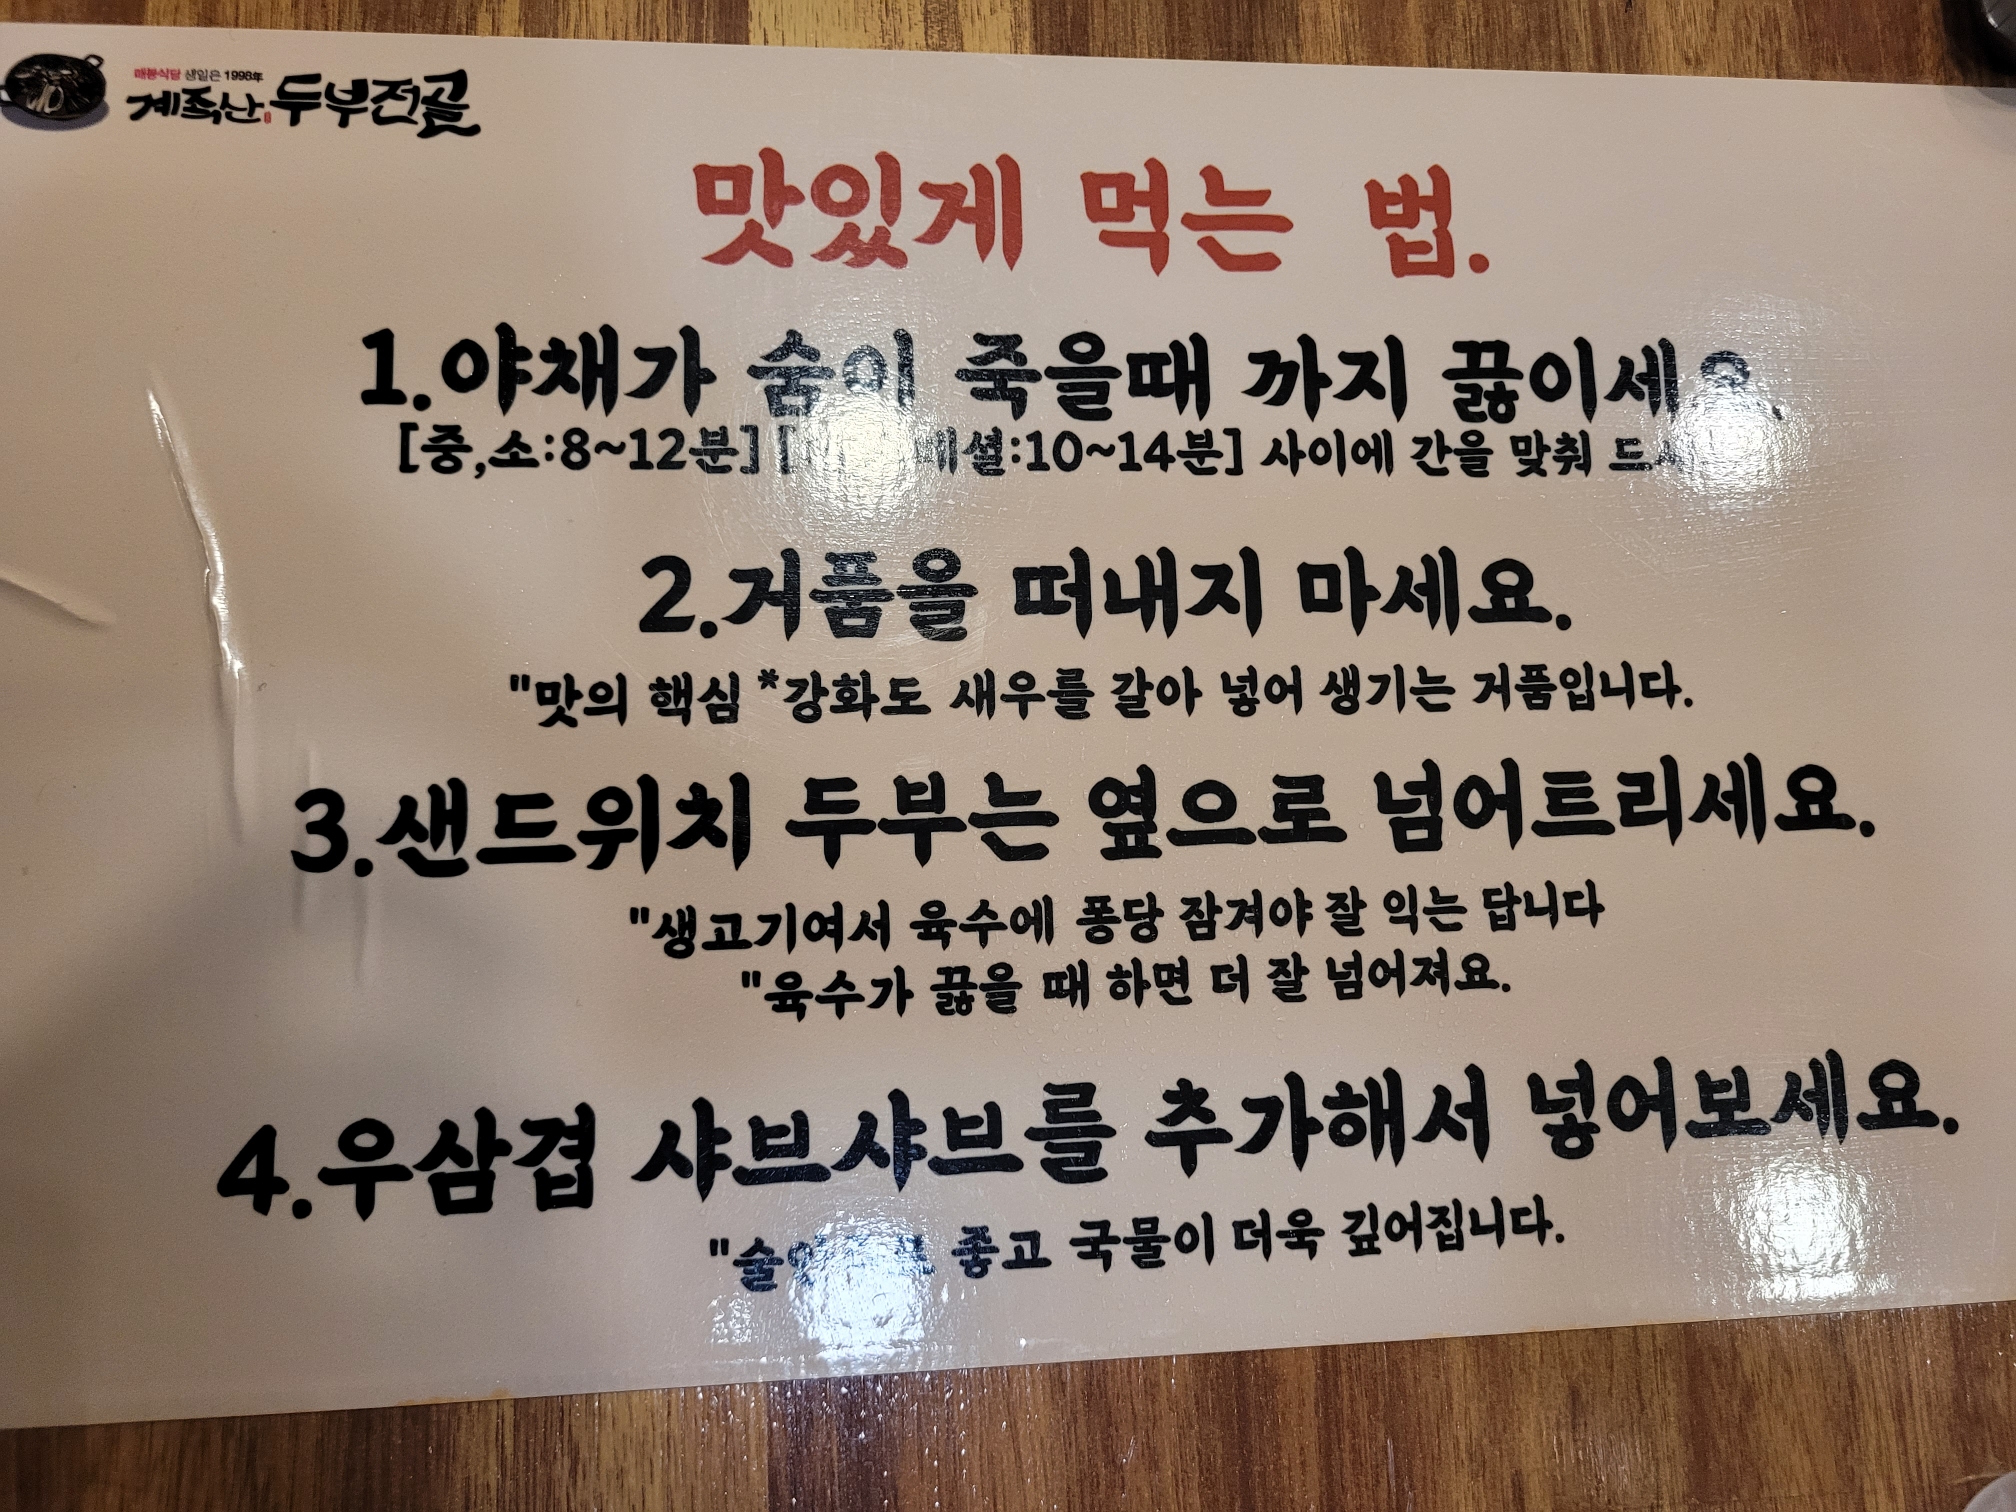 매봉식당 생일은 1998年
계족산 두부전골
맛있게 먹는 법.
1.야채가 숨이 죽을때 까지 끓이세요.
[중,소:8~12분] [ 셜:10~14분] 사이에 간을 맞춰
2.거품을 떠내지 마세요.
"맛의 핵심 *강화도 새우를 갈아 넣어 생기는 거품입니다.
3.샌드위치 두부는 옆으로 넘어트리세요.
"생고기여서 육수에 퐁당 잠겨야 잘 익는 답니다
"육수가 끓을 때 하면 더 잘 넘어져요.
4.우삼겹 샤브샤브를 추가해서 넣어보세요.
좋고 국물이 더욱 깊어집니다.